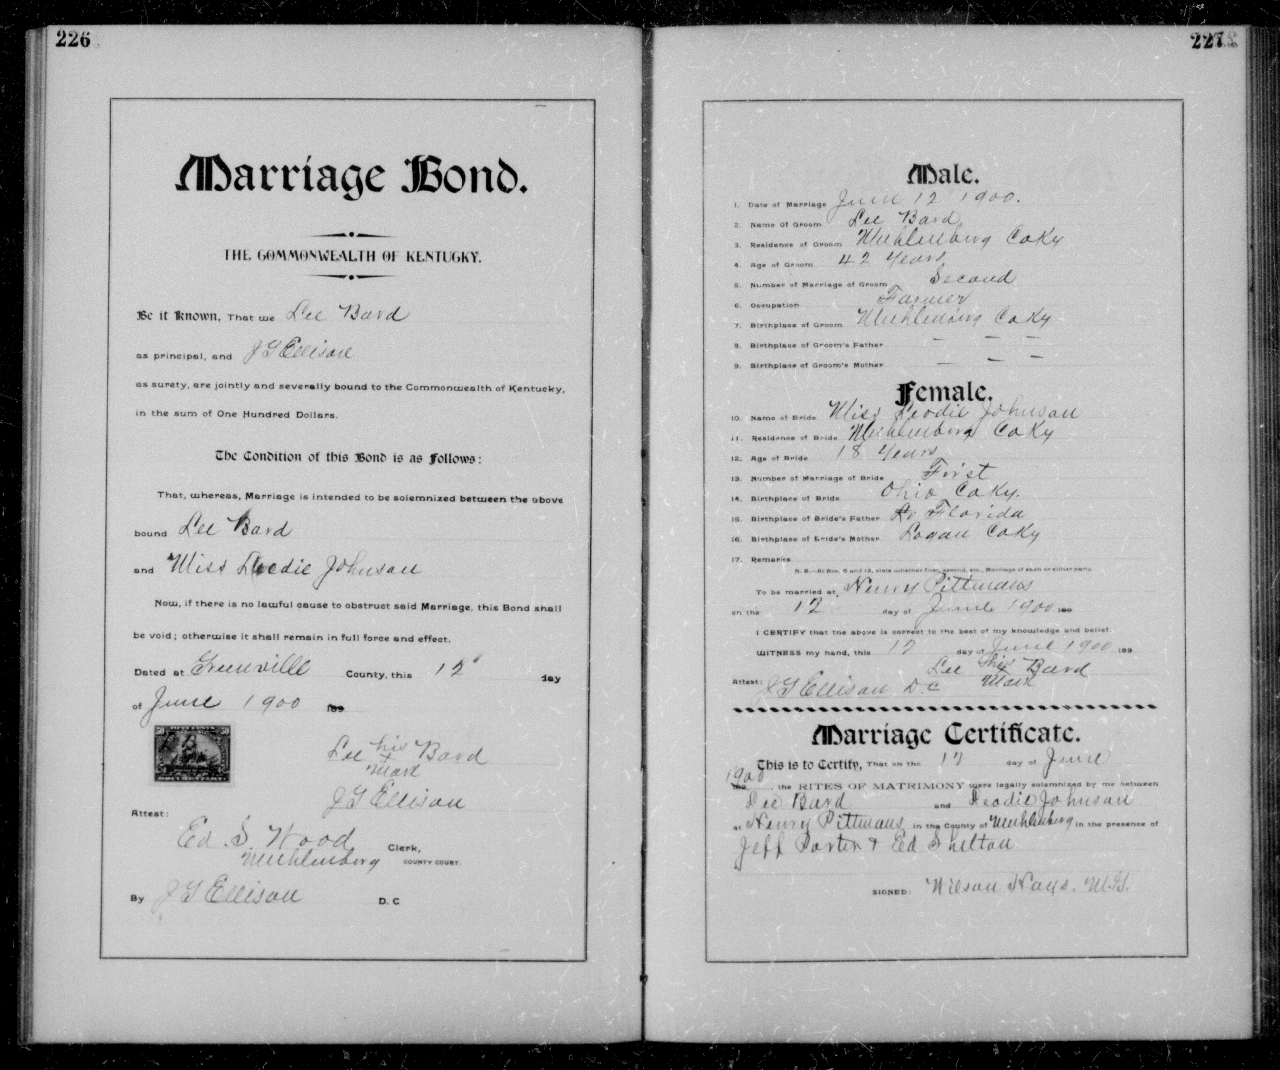 226
Marriage Bond.
THE COMMONWEALTH OF KENTUCKY.
Be it Known, That we Lee Bard
as principal, and J G Ellison
as surety, are jointly and severally bound to the Commonwealth of Kentucky,
in the sum of One Hundred Dollars.
The Condition of this Bond is as Follows:
That, whereas, Marriage is intended to be solemnized between the above
bound Lee Bard
and Miss Johnson
Now, if there is no lawful cause to obstruct said Marriage, this Bond shall
be void; otherwise it shall remain in full force and effect.
Dated at Greenville County, this 12" day
of June 1900 189
Lee his Bard
x
mark
J G Ellison
Attest:
Ed. S. Wood Clerk,
Muhlenberg COUNTY COURT.
By J G Ellison D. C
227
Male.
1. Date of Marriage June 12 1900.
2. Name Of Groom Lee Bard
3. Residence of Groom Muhlenberg Co Ky
4. Age of Groom 42 Years
5. Number of Marriage of Groom Second
6. Occupation Farmer
7. Birthplace of Groom Muhlenberg Co Ky
8. Birthplace of Groom's Father — — —
9. Birthplace of Groom's Mother — — —
Female.
10. Name of Bride Miss Johnson
11. Residence of Bride Muhlenberg Co Ky
12. Age of Bride 18 Years
13. Number of Marriage of Bride First
14. Birthplace of Bride Ohio Co Ky.
15. Birthplace of Bride's Father Florida
16. Birthplace of Bride's Mother Logan Co Ky
17. Remarks
N. B.—At Nos. 5 and 13, state whether first, second, etc., Marriage of each or either party.
To be married at Henry Pittmans
on the 12 day of June 1900 189
I CERTIFY that the above is correct to the best of my knowledge and belief.
WITNESS my hand, this 12 day of June 1900 189
Lee his Bard
x
mark
Attest: J G Ellison D. C
Marriage Certificate.
This is to Certify, That on the 12 day of June
1900
189 , the RITES OF MATRIMONY were legally solemnized by me between
Lee Bard and Johnson
at Henry Pittmans in the County of Muhlenberg in the presence of
Jeff Porter & Ed Shelton
SIGNED: Wilson Hays. M.G.